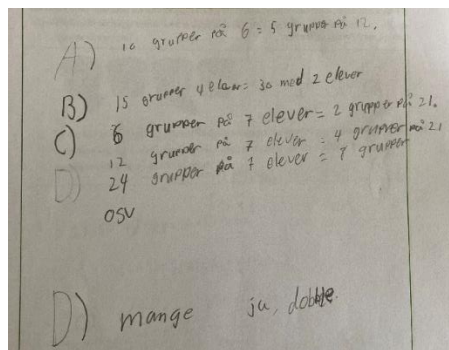 A) 10 grupper på 6 = 5 grupper på 12.
B) 15 grupper 4 elever = 30 med 2 elever
C) 6 grupper på 7 elever = 2 grupper på 21.
12 grupper på 7 elever = 4 grupper på 21
D) 24 grupper på 7 elever = 8 grupper
osv
D) mange ja, doble.